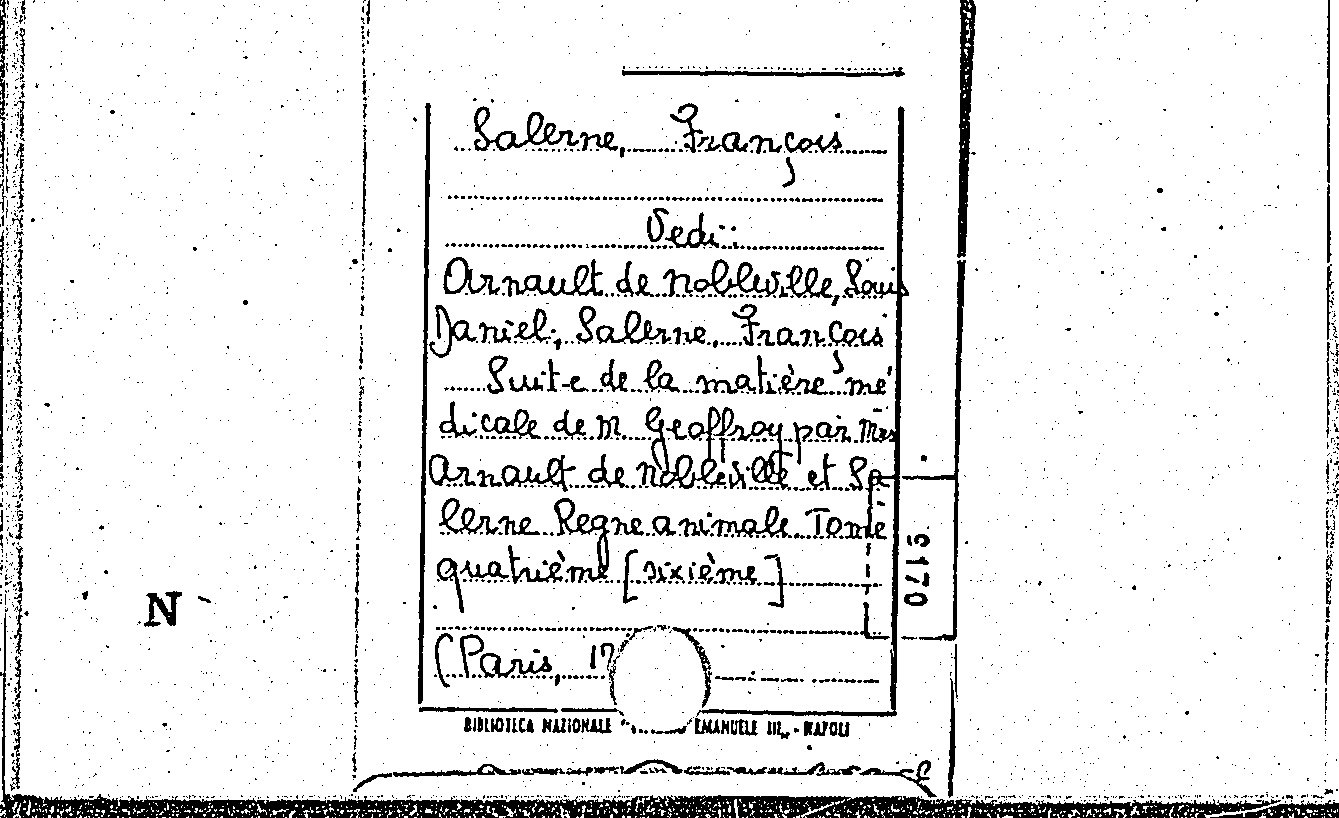 Salerne, François
Vedi:
Arnault de Nobleville, Louis
Daniel; Salerne, François
Suite de la matière mé
dicale de M. Geoffroy par Mrs
Arnault de Nobleville et Sa
lerne Regne animale. Tome
quatrième [sixième]
(Paris, 17
BIBLIOTECA NAZIONALE EMANUELE III - NAPOLI
5170
N